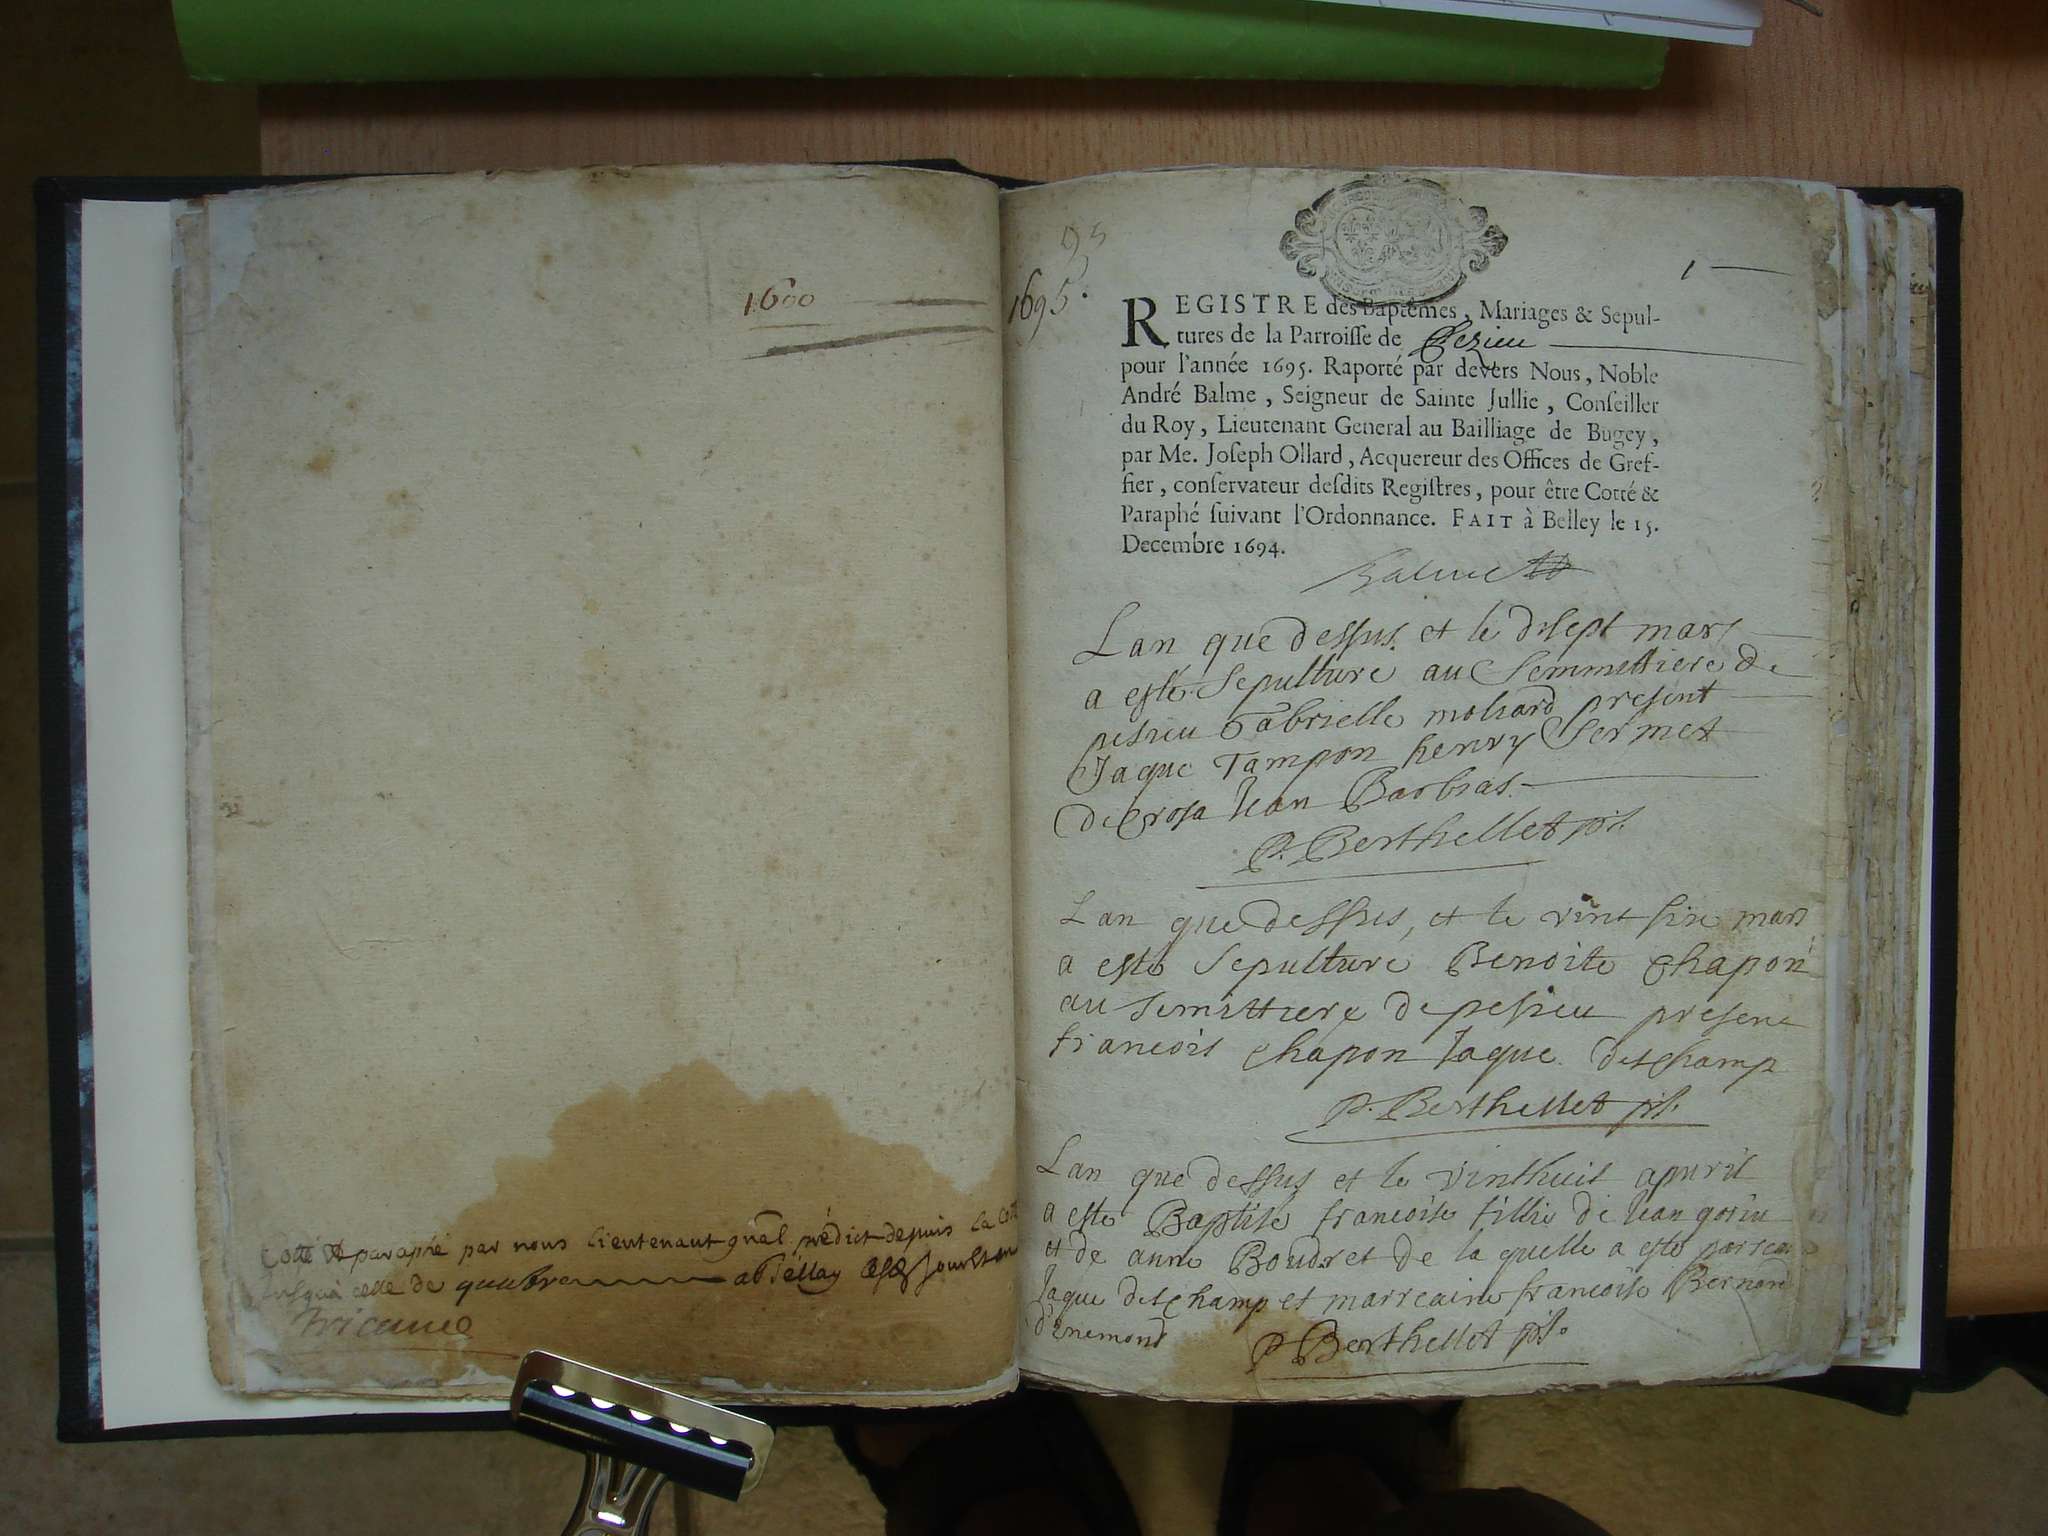 1600
Cotté & paraphé par nous Lieutenant gnãl prédict depuis la
jusqua celle de quatre a Belley
95
1695.
1
REGISTRE des Baptêmes, Mariages & Sepul-
tures de la Parroisse de Pezieu
pour l'année 1695. Raporté par devers Nous, Noble
André Balme, Seigneur de Sainte Jullie, Conseiller
du Roy, Lieutenant General au Bailliage de Bugey,
par Me. Joseph Ollard, Acquereur des Offices de Gref-
fier, conservateur desdits Registres, pour être Cotté &
Paraphé suivant l'Ordonnance. FAIT à Belley le 15.
Decembre 1694.
Balme
Lan que dessus. et le disept mars
a esté sepulture au semmettiere de
pesieu Gabrielle moliard present
Jaque Tampon henry Sermet
de crosa Jean Barbras.
P. Berthellet pt.
Lan que dessus, et le vint six mars
a esté sepulture Benoite chapon
au semittiere de pesieu present
francois chapon Jaque deschamp
P. Berthellet pt.
Lan que dessus et le vinthuit apvril
a esté Baptisé francoise fillie de Jean gorin
et de anne Boudret de la quelle a esté parrain
Jaque deschamp et marraine francoise Bernard
d'enemond
P. Berthellet pt.